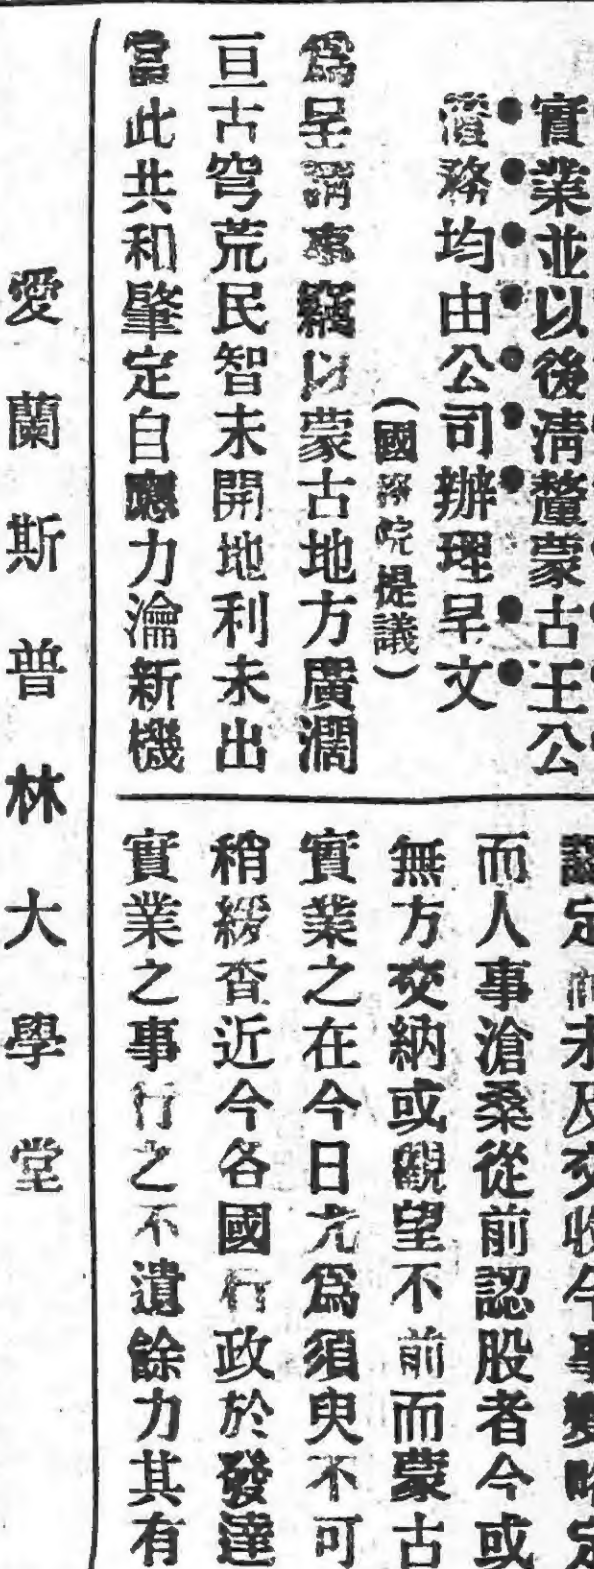 實業並以後清釐蒙古王公
債務均由公司辦理呈文
（國務院提議）
爲呈請事竊以蒙古地方廣濶
亘古穹荒民智未開地利未出
當此共和肇定自應力瀹新機
認定尚未及交收今事變略定
而人事滄桑從前認股者今或
無方交納或觀望不前而蒙古
實業之在今日尤爲須臾不可
稍緩查近今各國行政於發達
實業之事行之不遺餘力其有
愛蘭斯普林大學堂